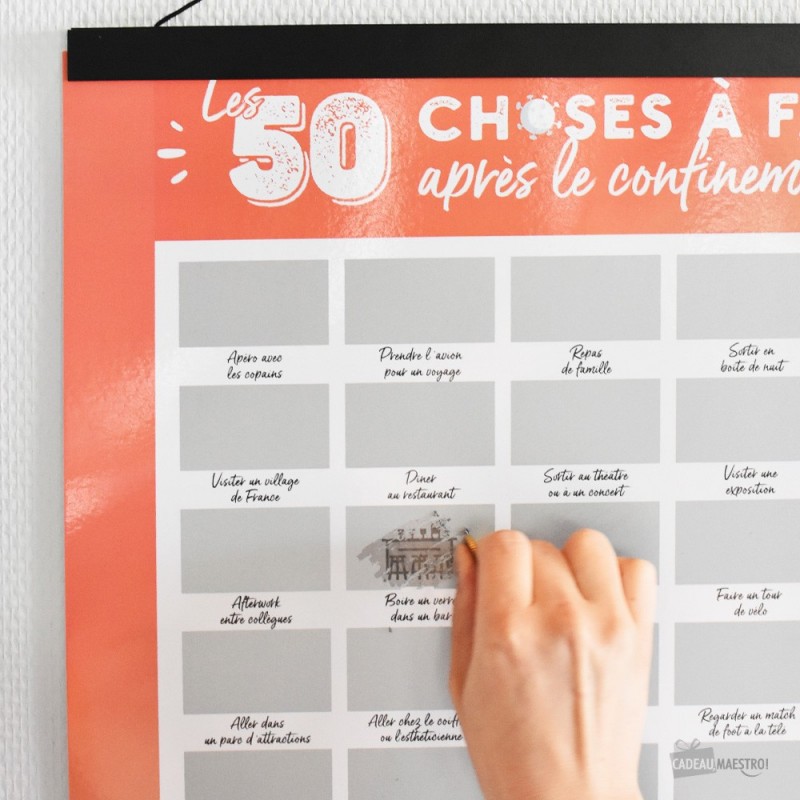 Les
50 CHOSES À F
après le confinem
Apéro avec
les copains
Prendre l'avion
pour un voyage
Repas
de famille
Sortir en
boîte de nuit
Visiter un village
de France
Dîner
au restaurant
Sortir au théâtre
ou à un concert
Visiter une
exposition
Afterwork
entre collègues
Boire un verre
dans un bar
Faire un tour
de vélo
Aller dans
un parc d'attractions
Aller chez le coiff
ou l'esthéticienne
Regarder un match
de foot à la télé
CADEAU MAESTRO!